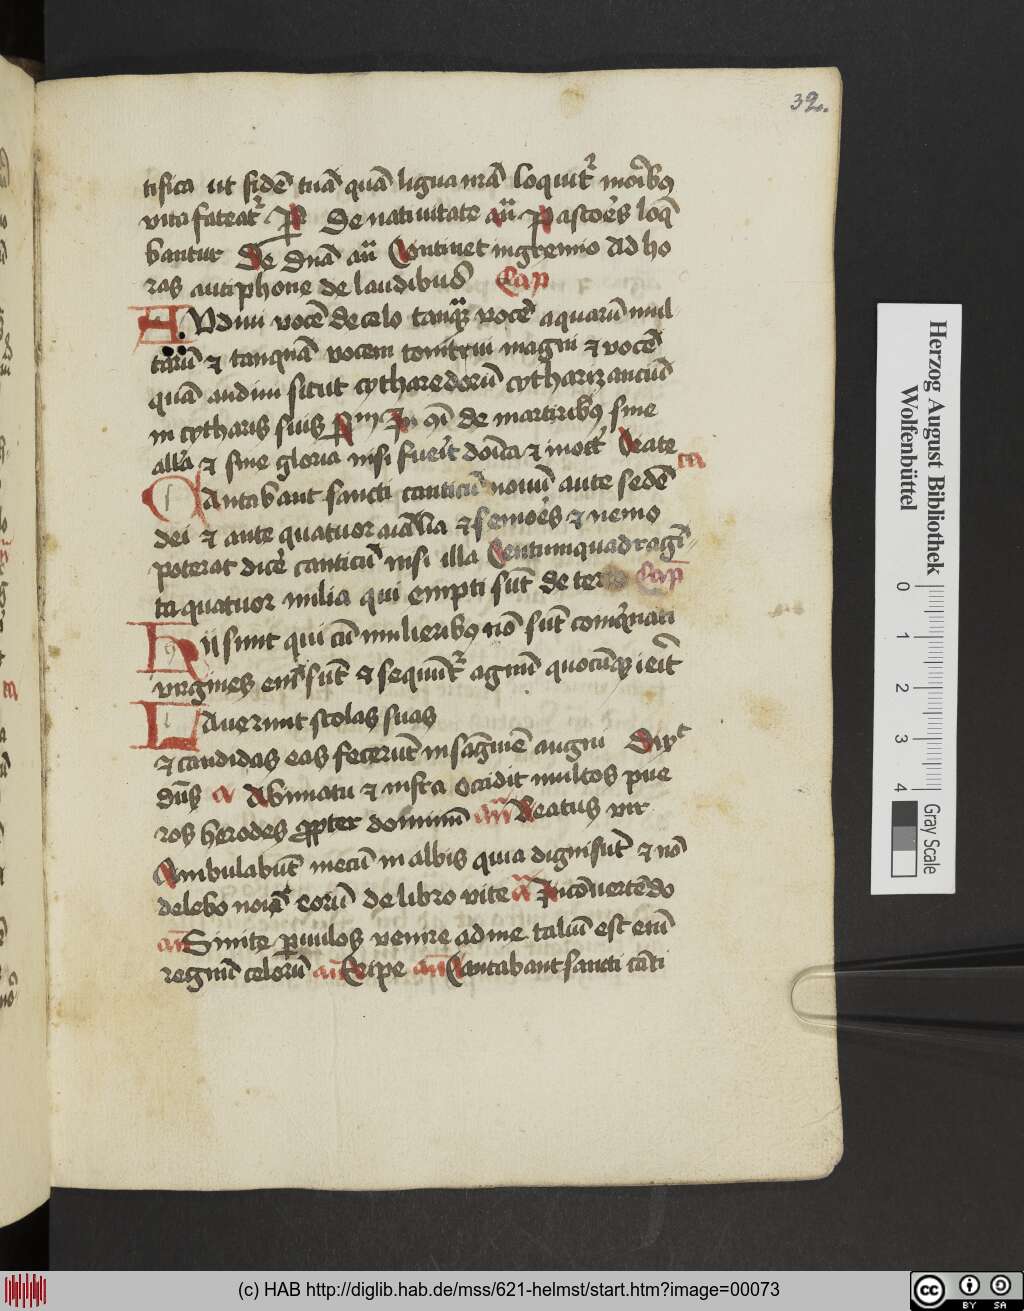 32.
tifica ut fidē tuā quā ligua nrā loquitr moribꝰ
vita fateatr P De nativitate añ Pastores loq̄
bantur De dnā añ Continet in gremio Ad ho
ras antiphone de laudibus Cap
AUdivi vocē de celo tanqȝ vocē aquarū mul
tarū et tanquā vocem tonitrui magni et vocē
quā audivi sicut cytharedorū cytharizanciū
in cytharis suis de martiribꝰ sine
allā et sine gloria nisi fuerit dōica Beate
CAntabant sancti canticū novū ante sedē
dei et ante quatuor aīalia et seniores et nemo
poterat dicē canticū nisi illa Centumquadragī
ta quatuor milia qui empti sūt de terra Cap
Hii sunt qui cū mulieribꝰ nō sūt coinqnati
virgines eni sūt et sequūtr agnū quocūqȝ ierīt
LAverunt stolas suas
et candidas eas fecerūt in sāgnie agni Dixt
dūs a Abimatu et infra Occidit multos pue
ros herodes propter dominū añ Beatus vir
Ambulabūt mecū in albis quia digni sūt et nō
delebo noīa eorū de libro vite a In cōvertēdo
añ Sinite parvulos venire ad me taliū est enī
regnū celorū añ Eripe añ Cantabant sancti cāti
Herzog August Bibliothek
Wolfenbüttel
0 1 2 3 4
Gray Scale
(c) HAB http://diglib.hab.de/mss/621-helmst/start.htm?image=00073
cc BY SA